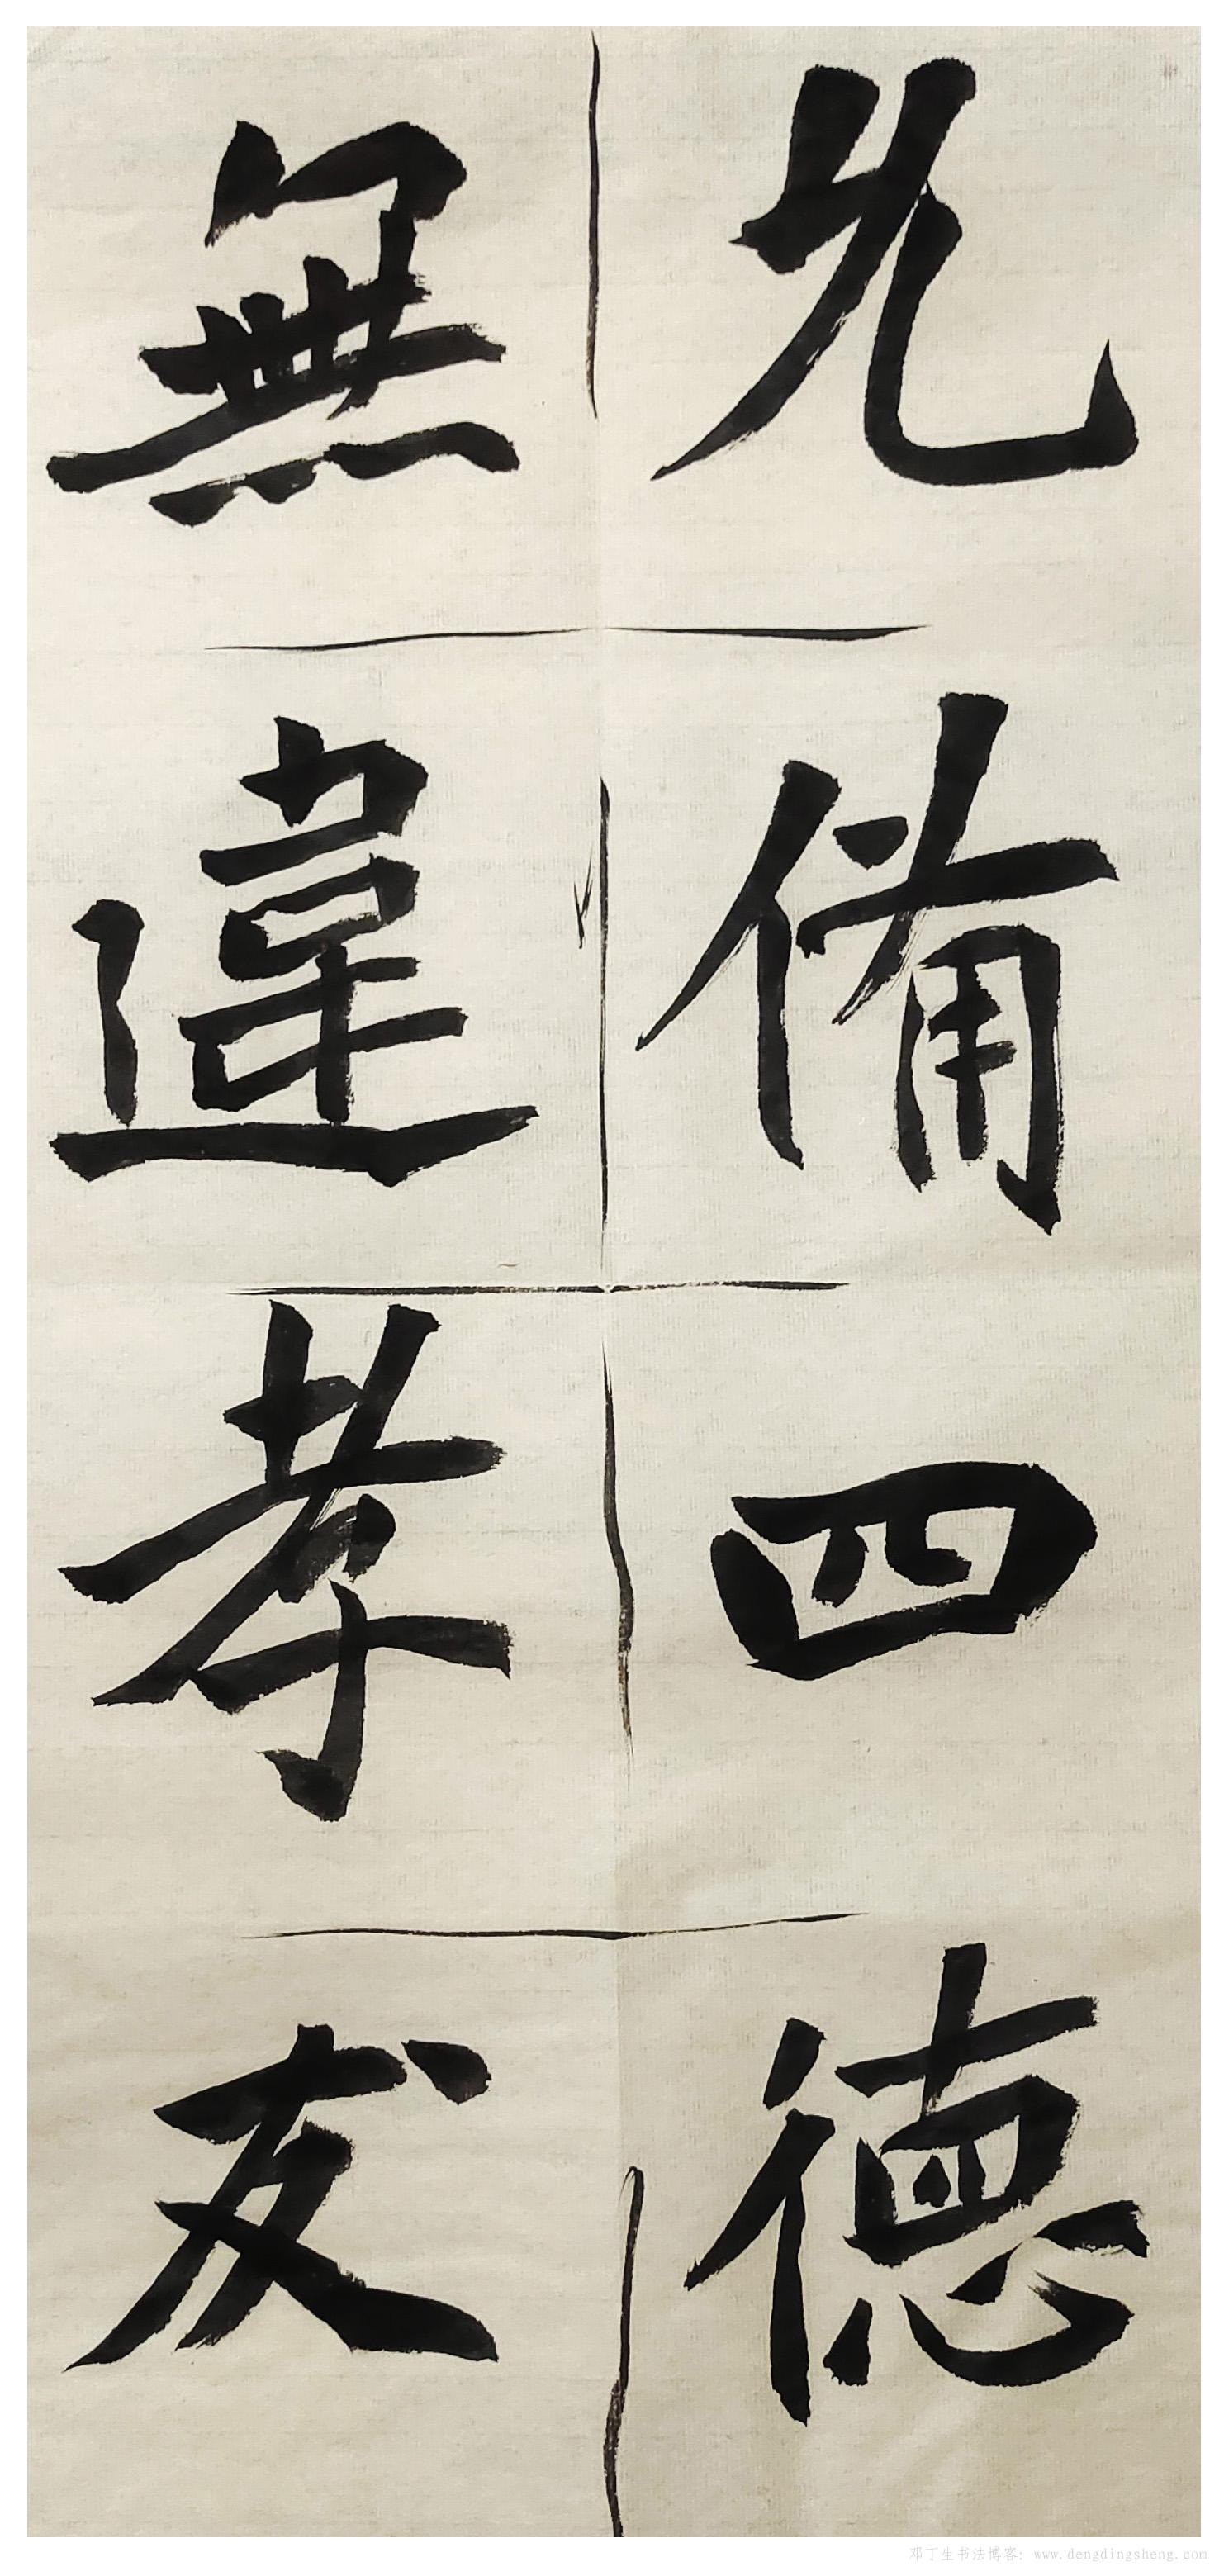 允備四德
無違孝友
邓丁生书法博客：www.dengdingsheng.com